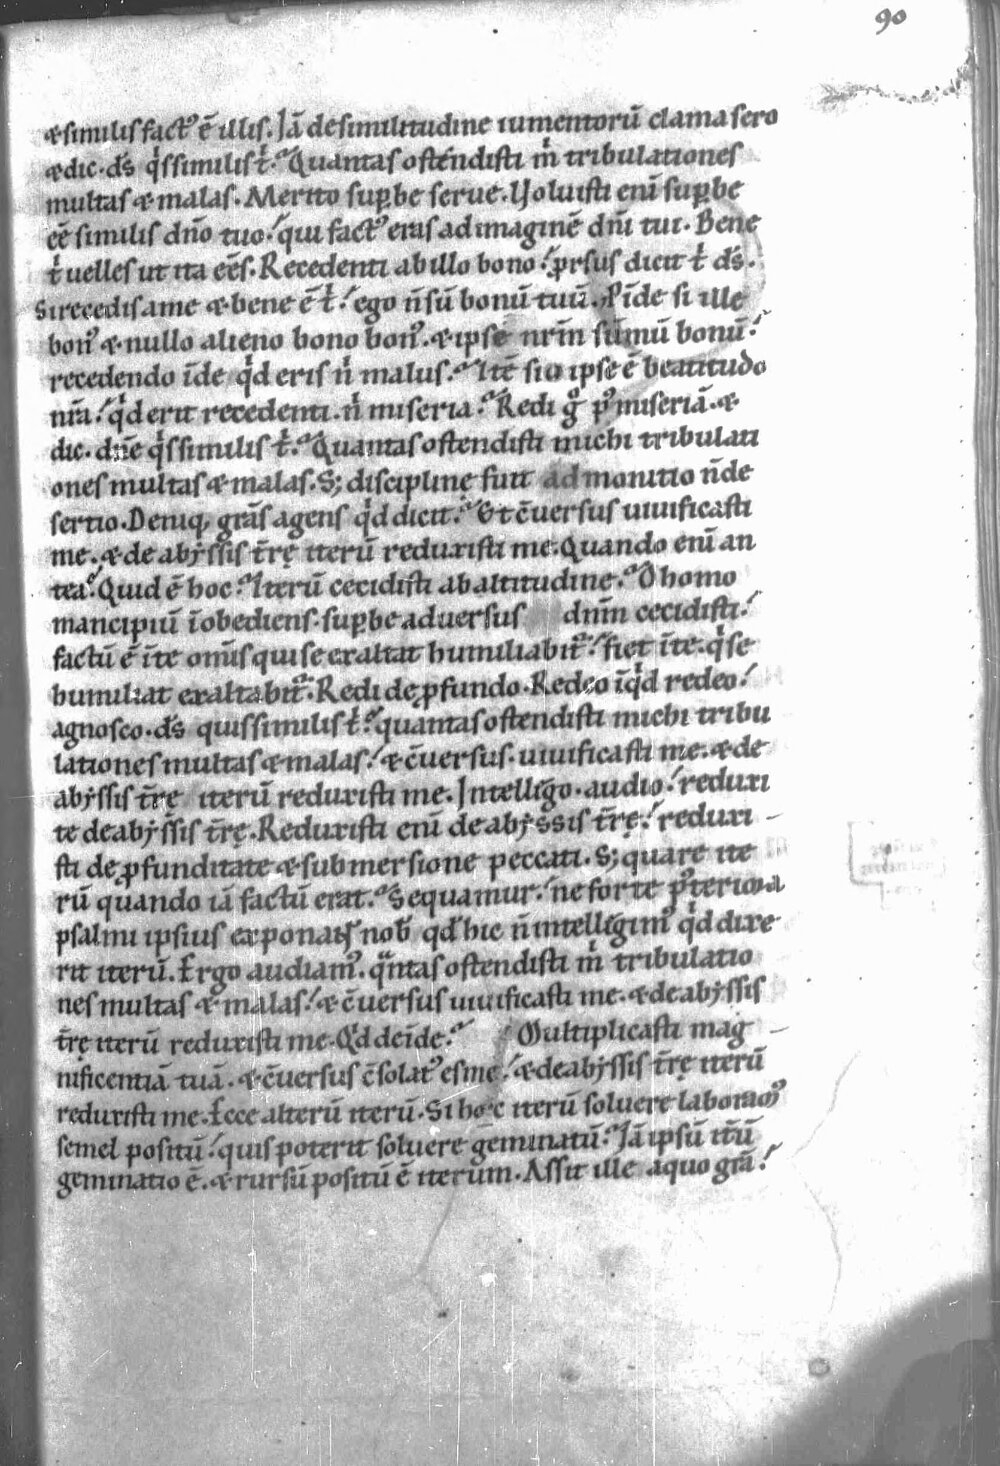 90
& similis fact᷒ ē illis. Iā de similitudine iumentorū clama sero
& dic. dš qͥs similis tͥ. Quantas ostendisti mͥ tribulationes
multas & malas. Merito suꝑbe serue. Noluisti enī suꝑbe
eē similis dño tuo. qui fact᷒ eras ad imaginē dñi tui. Bene
tͥ uelles ut ita eēs. Recedenti ab illo bono. ꝓrsus dicit tͥ dš.
Si recedis a me & bene ē tͥ. ego ñ sū bonū tuū. Pīde si ille
bon᷒ & nullo alieno bono bon᷒. & ipse nrm̄ sūmū bonū.
recedendo īde qͥd eris nͥ malus. Itē si ipse ē beatitudo
nrā. qͥd erit recedenti. nͥ miseria. Redi gͦ p᷒ miseriā. &
dic. dñe qͥs similis tͥ. Quantas ostendisti michi tribulati
ones multas & malas. S; discipline fuit ad monitio ñ de
sertio. Deniq, grās agens qͥd dicit. Et c̄uersus uiuificasti
me. & de abyssis t̄rę iterū reduxisti me. Quando enī an
tea. Quid ē hoc. Iterū cecidisti ab altitudine. O homo
mancipiū īobediens. suꝑbe aduersus dnm̄ cecidisti.
factū ē īte omīs qui se exaltat humiliabitᷣ. fiet īte. qͥ se
humiliat exaltabitᷣ. Redi de ꝓfundo. Redeo īqͥd redeo.
agnosco. dš quis similis tͥ. quantas ostendisti michi tribu
lationes multas & malas. & c̄uersus. uiuificasti me. & de
abyssis t̄rę iterū reduxisti me. Intelligo. audio. reduxi
te de abyssis t̄rę. Reduxisti enī de abyssis t̄rę. reduxi
sti de ꝓfunditate & submersione peccati. S; quare ite
rū quando iā factū erat. Sequamur. ne forte p᷒teriora
psalmi ipsius exponant nob̄ qd̄ hic ñ intelligim᷒ qͥd dixe
rit iterū. Ergo audiam᷒. qͣntas ostendisti mͥ tribulatio
nes multas & malas. & c̄uersus uiuificasti me. & de abyssis
t̄rę iterū reduxisti me. Qͥd deīde. Multiplicasti mag
nificentiā tuā. & c̄uersus c̄solat᷒ es me. & de abyssis t̄rę iterū
reduxisti me. Ecce alterū iterū. Si hoc iterū soluere laboram᷒
semel positū. quis poterit soluere geminatū. Iā ipsū it̄ū
geminatio ē. & rursū positū ē iterum. Assit ille a quo grā.